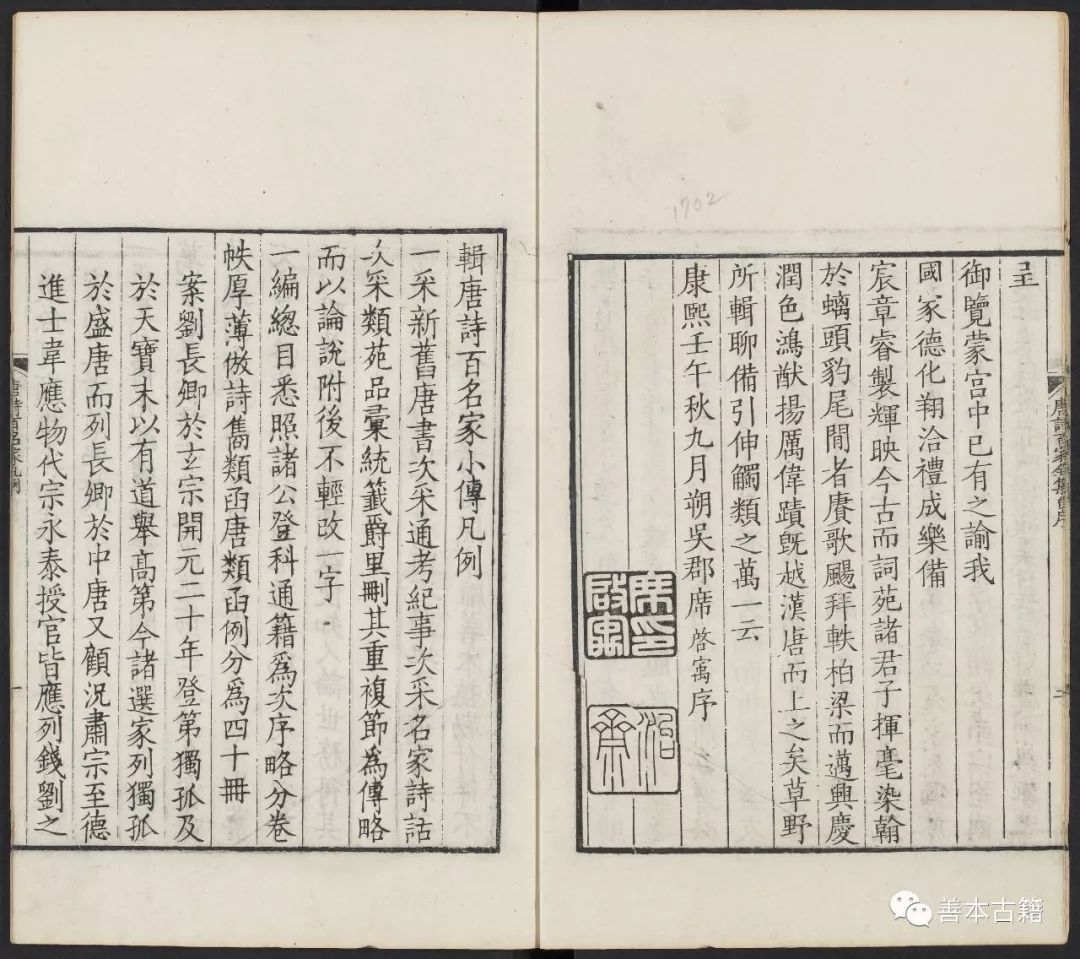 呈
御覽蒙宫中已有之諭我
國家德化翔洽禮成樂備
宸章睿製輝映今古而詞苑諸君子揮毫染翰
於螭頭豹尾間者賡歌颺拜軼柏梁而邁興慶
潤色鴻猷揚厲偉蹟旣越漢唐而上之矣草野
所輯聊備引伸觸類之萬一云
康熙壬午秋九月朔吳郡席啓寓序
席印啟寓
治齋
1702
輯唐詩百名家小傳凡例
一采新舊唐書次采通考紀事次采名家詩話
次采類苑品彙統籤爵里刪其重複節爲傳略
而以論說附後不輕改一字
一編總目悉照諸公登科通籍爲次序略分卷
帙厚薄倣詩雋類函唐類函例分爲四十冊
案劉長卿於玄宗開元二十年登第獨孤及
於天寶末以有道舉高第今諸選家列獨孤
於盛唐而列長卿於中唐又顧況肅宗至德
進士韋應物代宗永泰授官皆應列錢劉之
唐詩百名家凡例
一
善本古籍